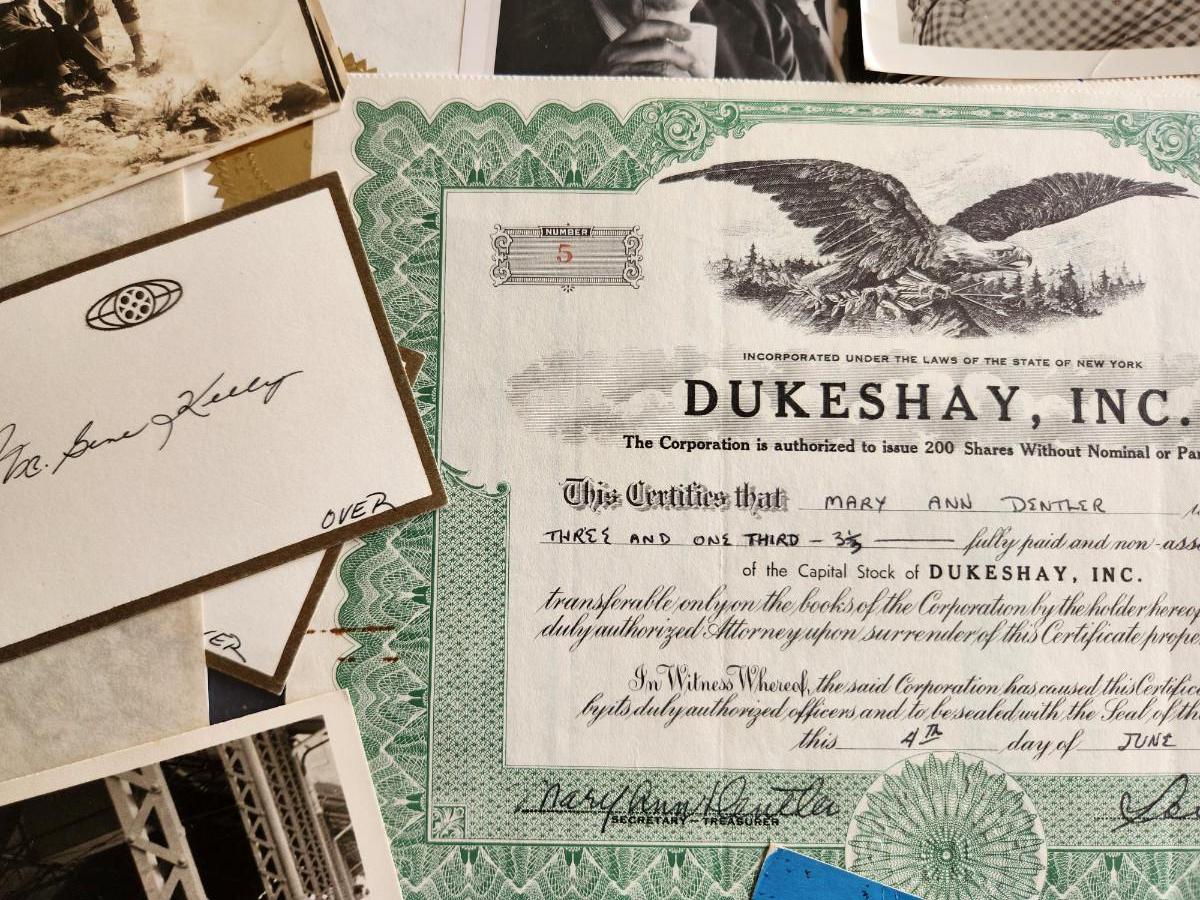 Mr. Gene Kelly
OVER
ER
NUMBER
5
INCORPORATED UNDER THE LAWS OF THE STATE OF NEW YORK
DUKESHAY, INC.
The Corporation is authorized to issue 200 Shares Without Nominal or Par
This Certifies that MARY ANN DENTLER
THREE AND ONE THIRD - 3⅓ fully paid and non-asse
of the Capital Stock of DUKESHAY, INC.
transferable only on the books of the Corporation by the holder hereo
duly authorized Attorney upon surrender of this Certificate prope
In Witness Whereof, the said Corporation has caused this Certific
by its duly authorized officers and to be sealed with the Seal of th
this 4TH day of JUNE
Mary Ann Dentler
SECRETARY-TREASURER